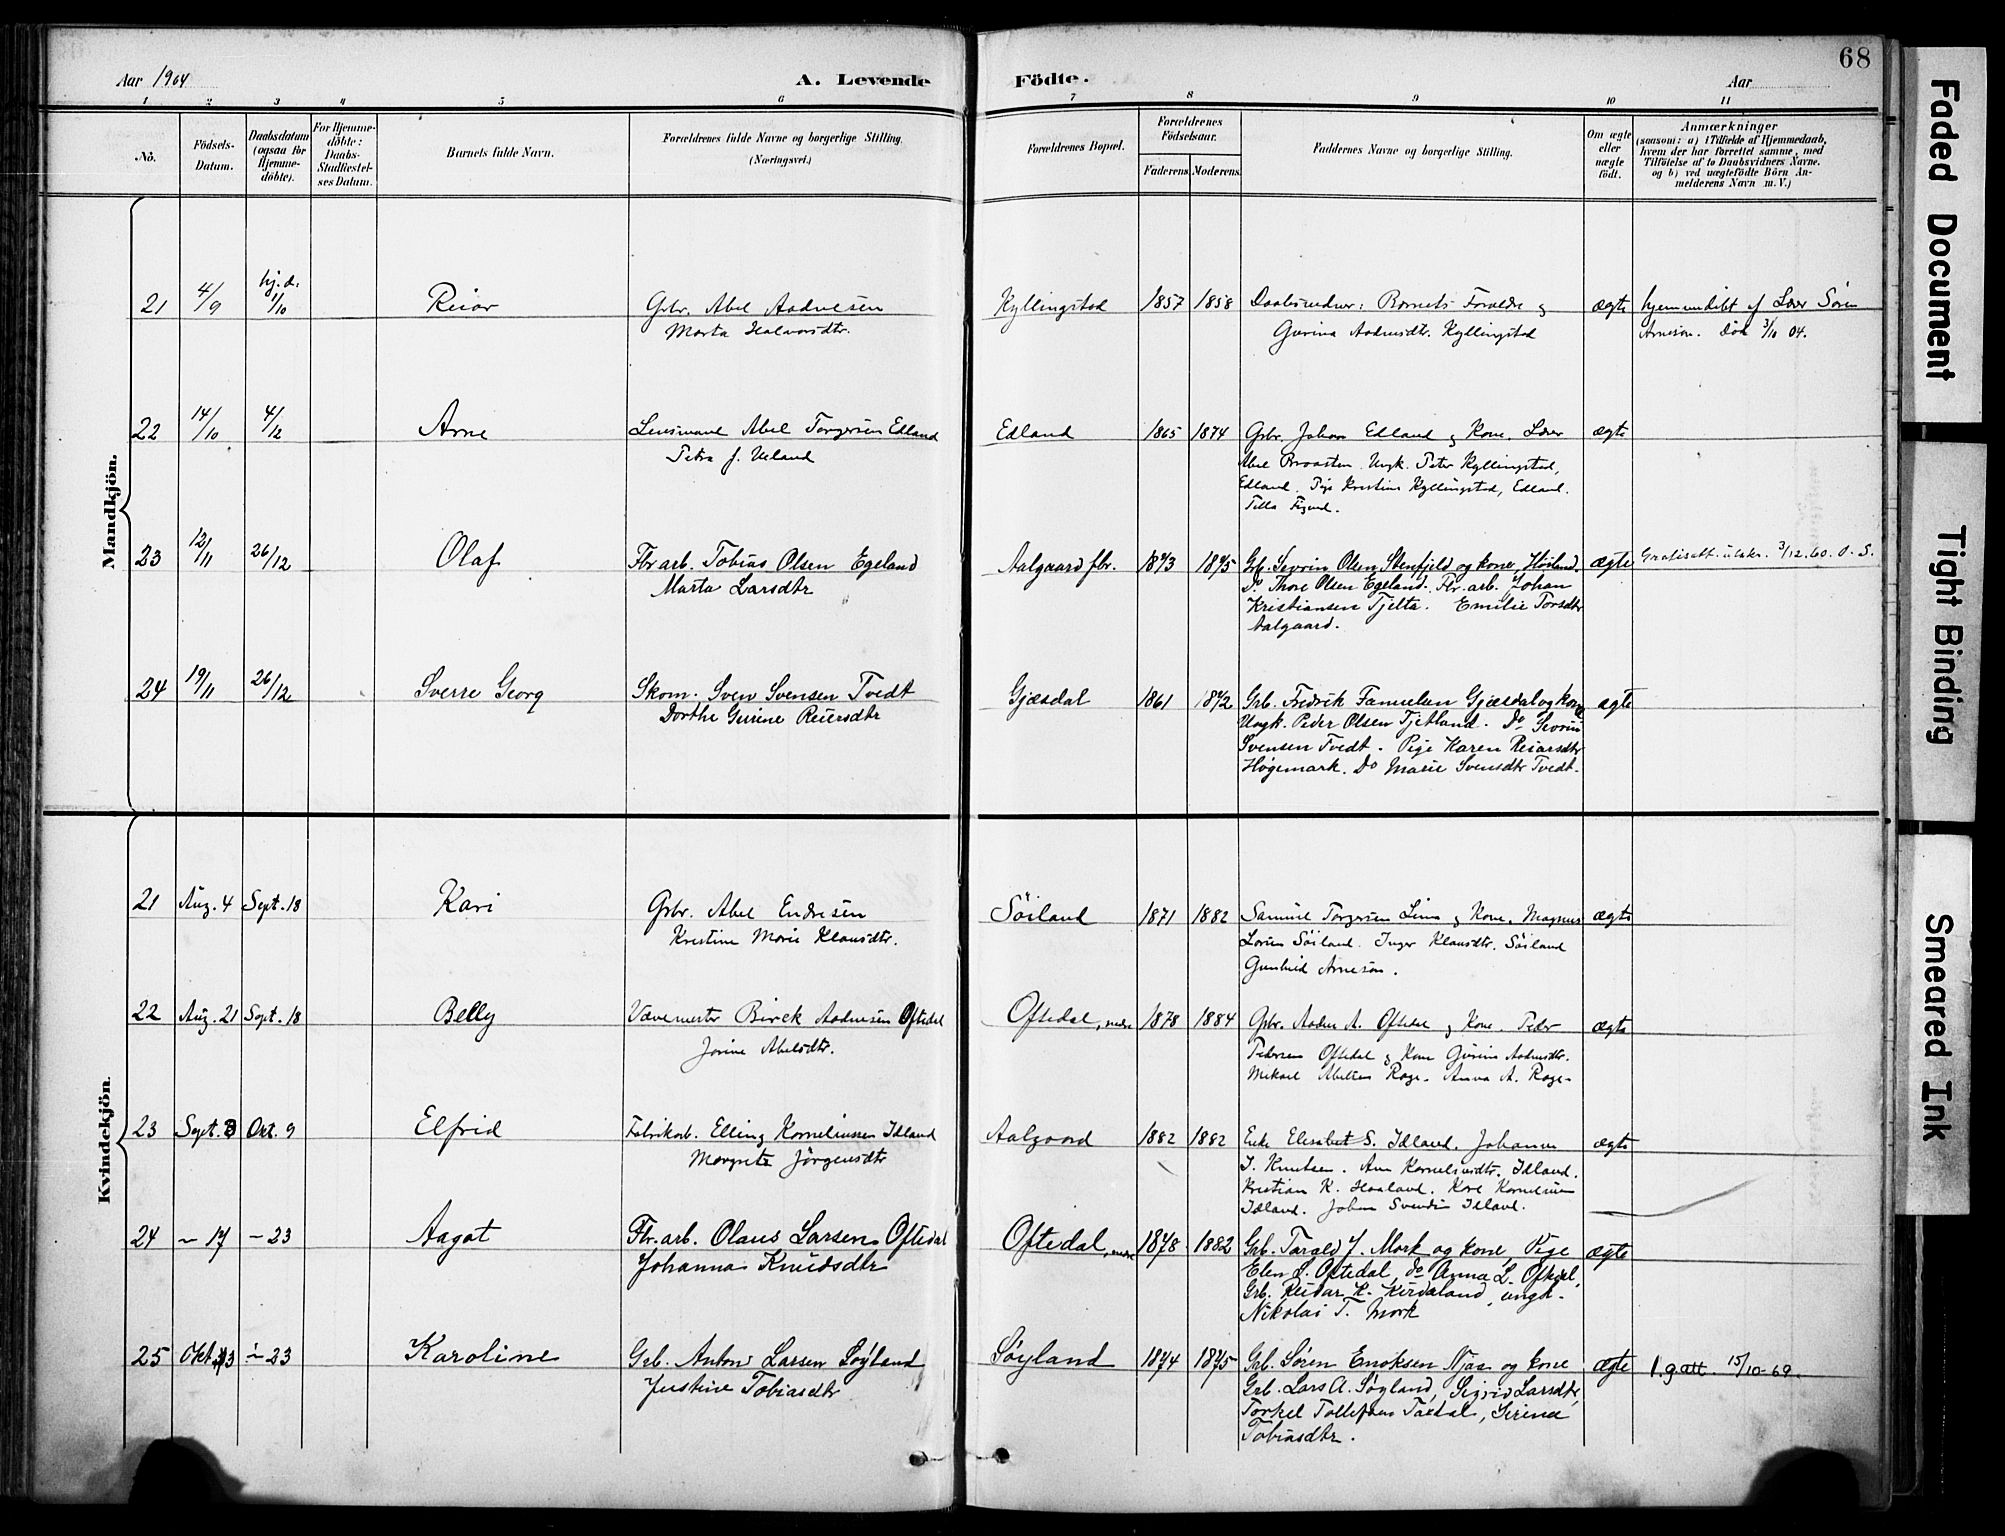 Aar 1904
A. Levende
Födte.
Aar
68
1 2 3 4 5 6 7 8 9 10 11
No.
Födsels-
Datum.
Daabsdatum
(ogsaa for
Hjemme-
döbte).
For Hjemme-
döbte:
Daabs-
Stadfæstel-
ses Datum.
Barnets fulde Navn.
Forældrenes fulde Navne og borgerlige Stilling.
(Næringsvei.)
Forældrenes Bopæl.
Forældrenes
Födselsaar.
Faderens
Moderens
Faddernes Navne og borgerlige Stilling.
Om ægte
eller
uægte
födt.
Anmærkninger
(saasom: a) i Tilfælde af Hjemmedaab,
hvem der har forrettet samme, med
Tilföielse af to Daabsvidners Navne.
og b) ved uægtefödte Börn An-
melderens Navn m. V.)
Mandkjön.
21 4/9 hj. d. 1/10 Reior Gbr. Abel Aadnesen Kyllingstad 1857 1858 Daabsvidner: Barnets Forældre og ægte hjemmedöbt af Lærer Sören
Marta Halvorsdtr. Gurina Aadnesdtr. Kyllingstad Arnesen. Död 3/10 04.
22 14/10 4/12 Arne Lensmand Abel Torgersen Edland Edland 1865 1874 Gbr. Johan Edland og Kone. Lærer ægte
Petra J. Ueland Abel Braasten. Ungk. Peter Kyllingstad,
Edland. Pige Kristine Kyllingstad, Edland.
23 12/11 26/12 Olaf Fbr arb. Tobias Olsen Egeland Aalgaard fbr. 1873 1875 Grb. Severin Olsen Stenfjeld og kone, Høiland. ægte Gratisatt. utskr. 3/12.60. O.S.
Marta Larsdtr Do. Thore Olsen Egeland. Fbr. arb. Johan
Kristiansen Tjelta. Emilie Torsdtr
Aalgaard.
24 19/11 26/12 Sverre Georg Skom. Sven Svensen Tvedt Gjæsdal 1861 1872 Grb. Fredrik Gjæsdal og kone ægte
Dorthe Gurine Reiersdtr Ungk. Peder Olsen Tjetland. Do Severin
Svensen Tvedt. Pige Karen Reiarsdtr
Høgemark. Do Marie Svensdtr Tvedt.
Kvindekjön.
21 Aug. 4 Sept. 18 Kari Gbr. Abel Endresen Söiland 1871 1882 Samuel Torgersen Lima og Kone. Magnus ægte
Kristine Marie Klausdtr. Söiland. Inger Klausdtr. Söiland
Gunhild Arnesen.
22 Aug. 21 Sept. 18 Belly Vævemester Birek Aadnesen Oftedal Oftedal, nedre 1878 1884 Gbr. Aadne A. Oftedal og Kone. Peder ægte
Jorine Abelsdtr. Pedersen Oftedal og Kone Gurine Aadnesdtr.
Mikael Abelsen Rage. Anna A. Rage.
23 Sept. 3 Okt. 9 Elfrid Fabrikarb. Elling Korneliussen Idland Aalgaard 1882 1882 Enke Elisabet S. Idland. Johanne ægte
Margrete Jörgensdtr I. Knutsen. Ane Kornelsdtr. Idland.
Kristian K. Haaland. Karl Kornelius
Idland. Johan Svendsen Idland.
24 – 17 – 23 Aagot Fbr. arb. Olaus Larsen Oftedal Oftedal, nedre 1878 1882 Grb. Tarald J. Mork og kone, Pige ægte
Johanna Knudsdtr Elen L. Oftedal, do Anna L. Oftedal,
Grb. Reidar K. Kirdaland, ungk.
Nikolai T. Mork
25 Okt. 3 – 23 Karoline Grb. Anton Larsen Søyland Søyland 1874 1875 Grb. Søren Enoksen Njaa og kone ægte 1. g. att. 15/10-69.
Justine Tobiasdtr Grb. Lars A. Søyland, Sigrid Larsdtr,
Torkel Tollefsen Taxdal, Serina
Tobiasdtr.
Faded Document
Tight Binding
Smeared Ink